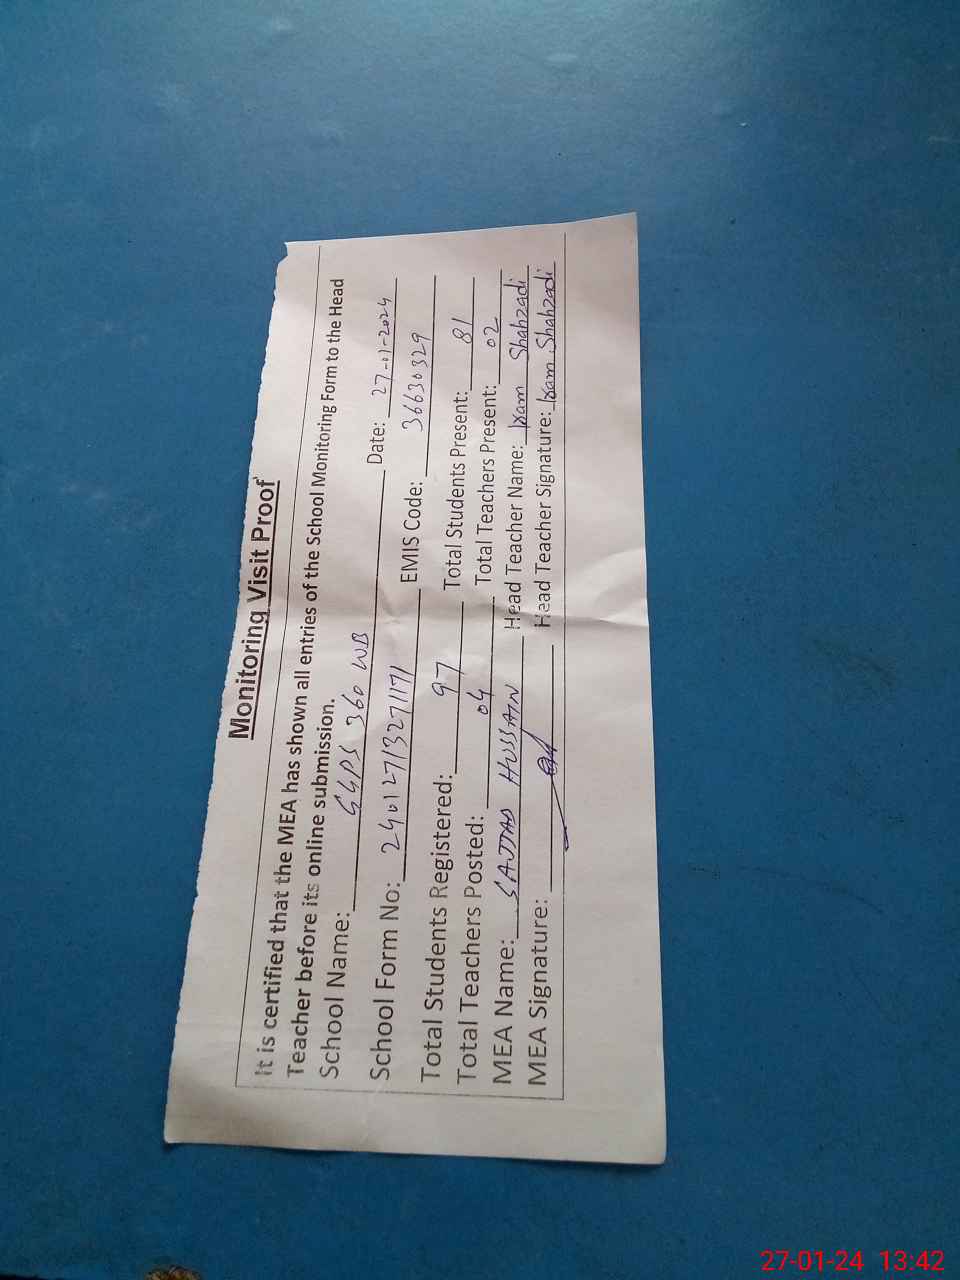 Monitoring Visit Proof
It is certified that the MEA has shown all entries of the School Monitoring Form to the Head
Teacher before its online submission.
School Name: GGPS 360 WB Date: 27-01-2024
School Form No: 24012713271171 EMIS Code: 36630329
Total Students Registered: 97 Total Students Present: 81
Total Teachers Posted: 04 Total Teachers Present: 02
MEA Name: SAJJAD HUSSAIN Head Teacher Name: Iram Shahzadi
MEA Signature: Head Teacher Signature: Iram Shahzadi
27-01-24 13:42